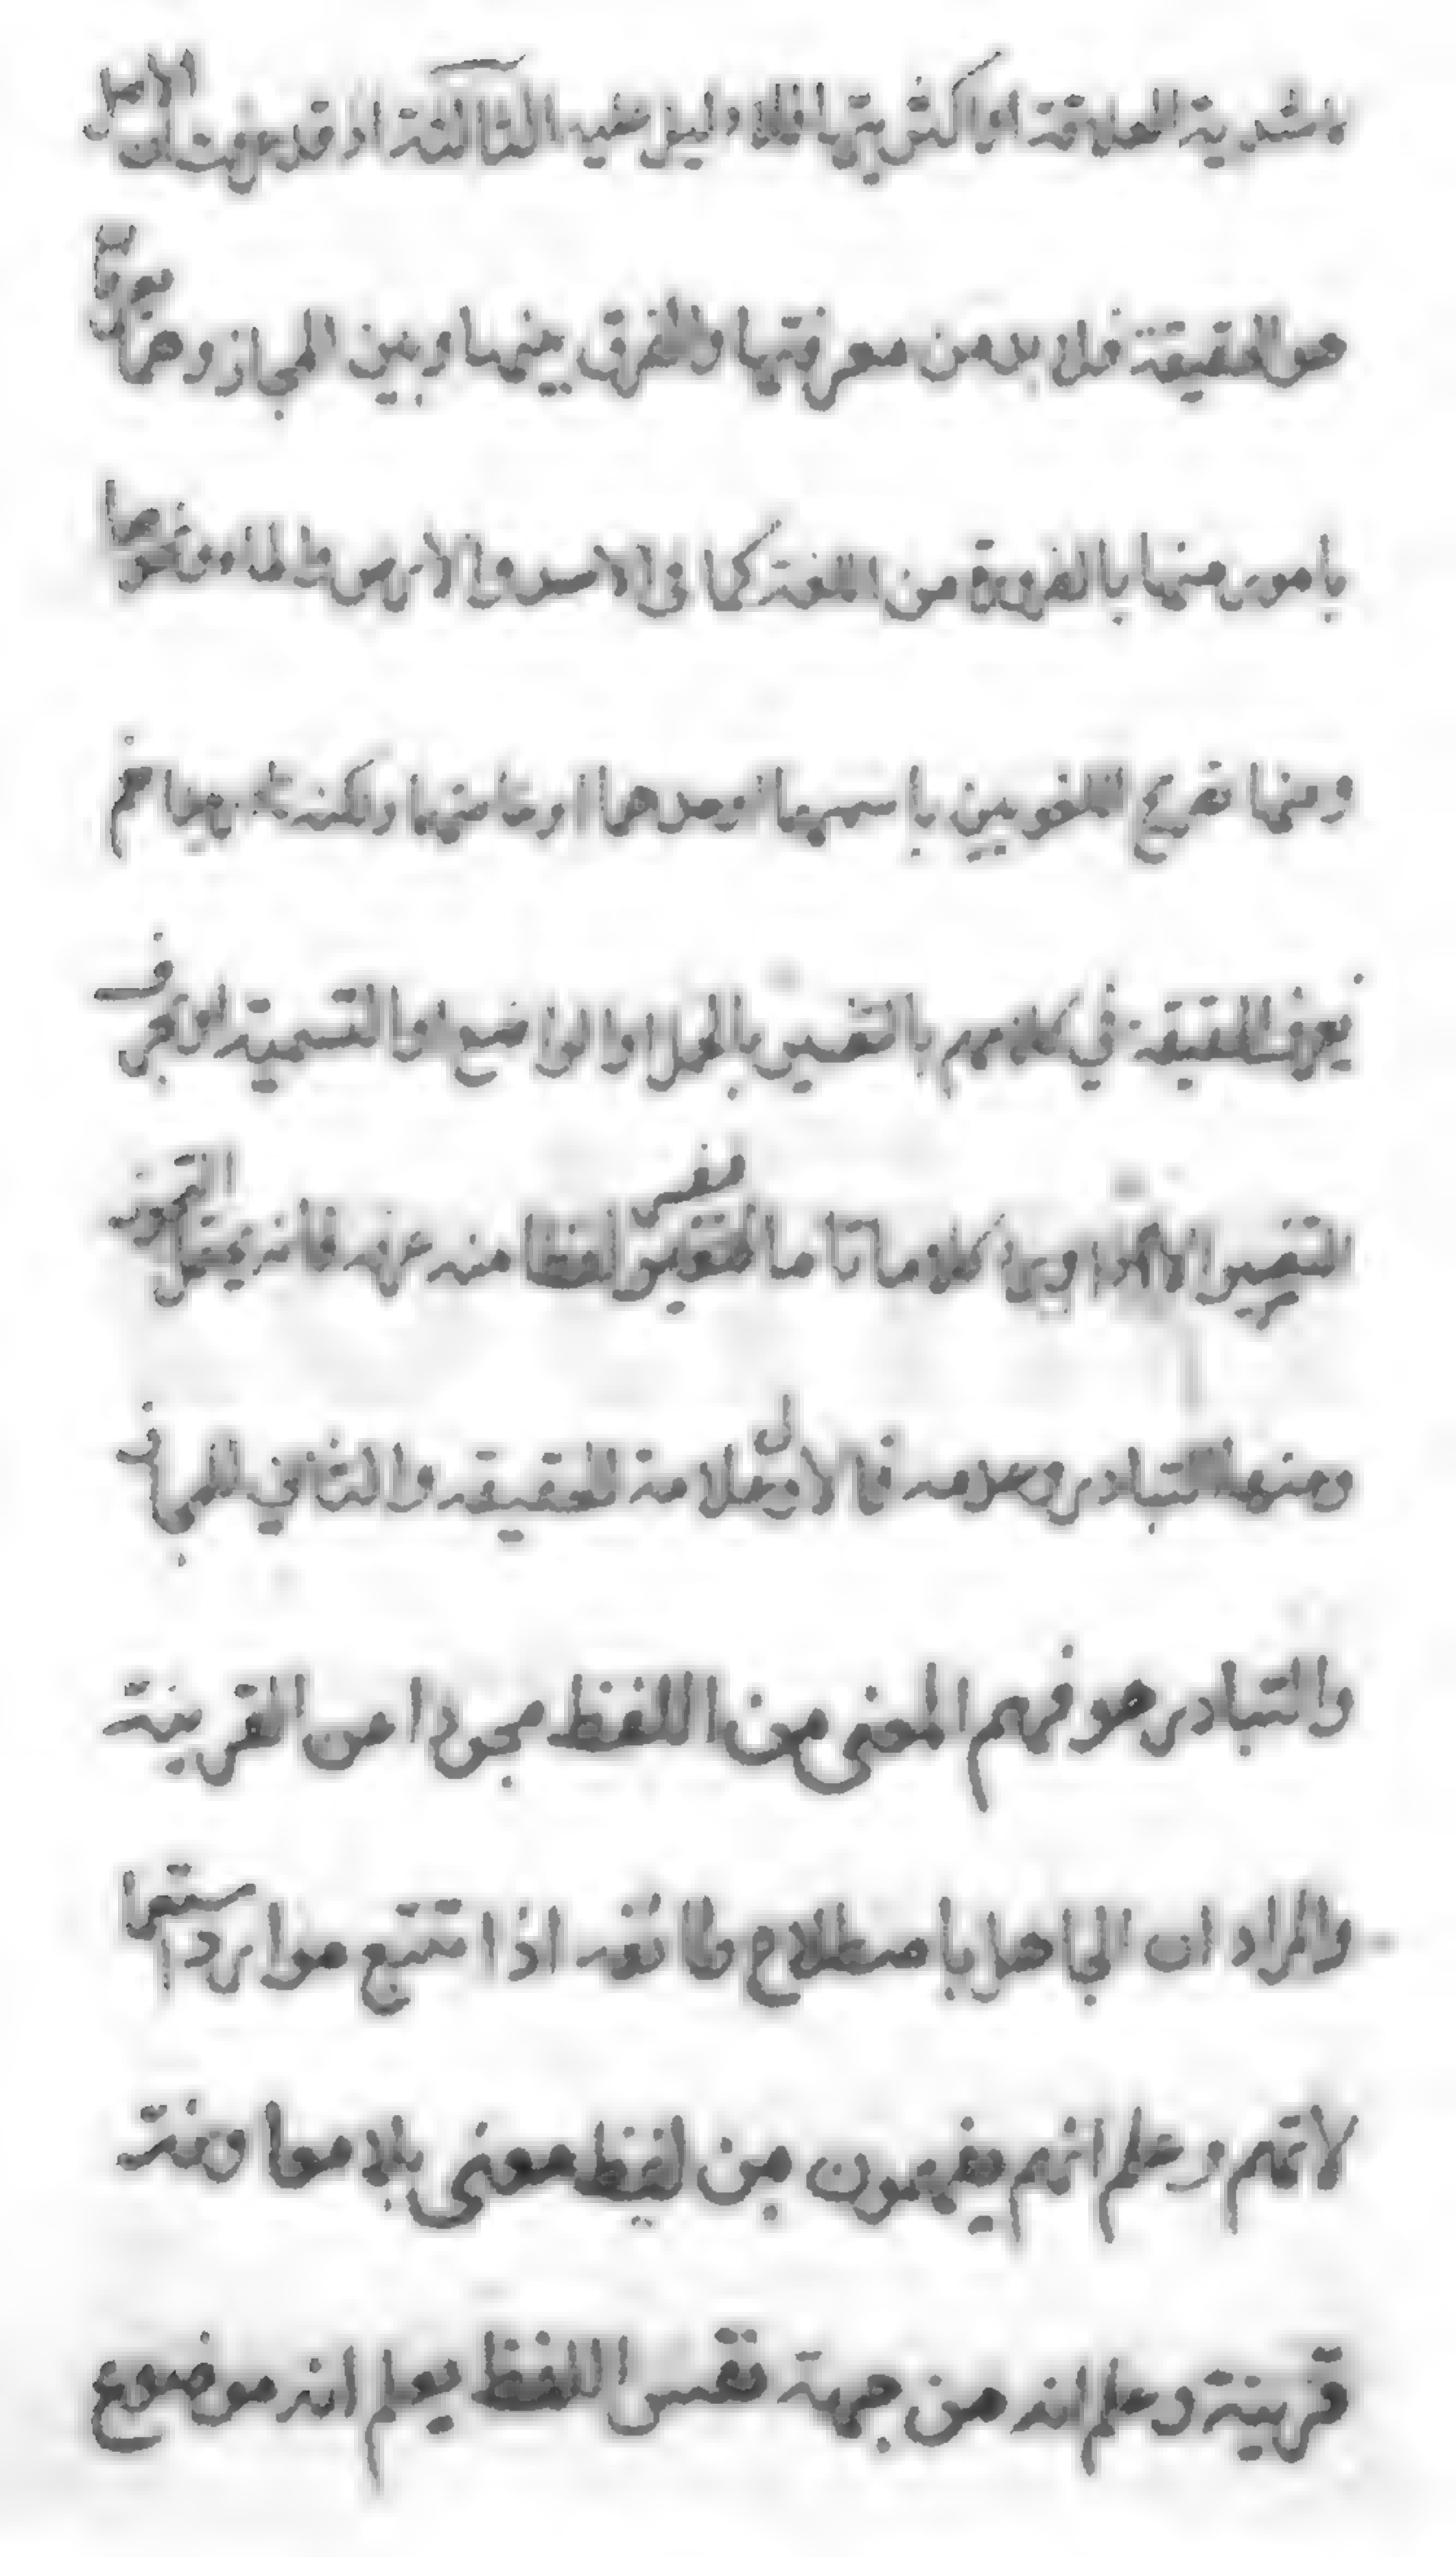 باشدية العلاقة او اكثريتها فلا دليل عليه الثالثة اذ قد عرفت ان الاصل
هو الحقيقة فلا بد من معرفتها والفرق بينها وبين المجاز وهي تعرف
بامور منها بالضرورة من اللغة كما في الاسد والارض والماء ونحوها
ومنها تصريح اللغويين باسمها او حدها او خاصتها ولكنه
الحقيقة في كلامهم بالتفسير بالحمل او الواضع او التسمية او
التفسير كلاما تاما لفظا منه عنه فانه
ومنها التبادر وعدمه فالاول علامة للحقيقه والثاني للمجاز
والتبادر هو فهم المعنى من اللفظ مجردا عن القرينة
والمراد ان الجاهل باصطلاح طائفه اذا تتبع موارد استعما
لاتهم وعلم انهم يفهمون من لفظ معنى بلا معاونة
قرينة وعلم انه من جهة نفس اللفظ يعلم انه موضوع